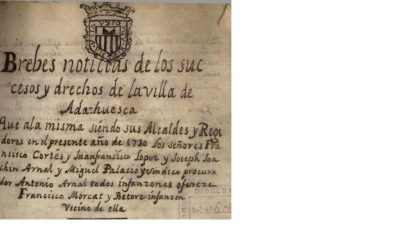 Brebes noticias de los suc
cesos y drechos de la villa de
Adahuesca
Que a la misma siendo sus Alcaldes y Regi
dores en el presente año de 1730 los señores Fra
ncisco Cortés y Juanfrancisco Lopez y Joseph Joa
chin Arnal y Miguel Palacio y sindico procura
dor Antonio Arnal todos infanzones ofereze
Francisco Morcat y Betorz infanzon
Vecino de ella